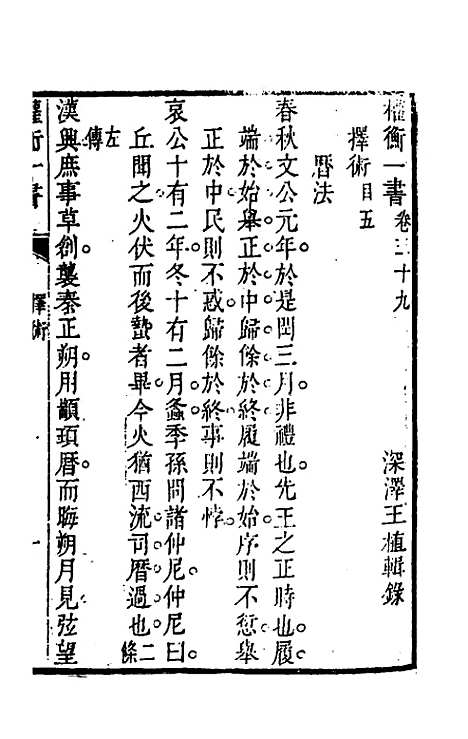 權衡一書 卷三十九 深澤王植輯錄
擇術 目五
曆法
春秋文公元年於是閏三月非禮也先王之正時也履
端於始舉正於中歸餘於終履端於始序則不愆舉
正於中民則不惑歸餘於終事則不悖
哀公十有二年冬十有二月螽季孫問諸仲尼仲尼曰
丘聞之火伏而後蟄者畢今火猶西流司曆過也二條
左傳
漢興庶事草創襲秦正朔用顓頊曆而晦朔月見弦望
權衡一書 擇術 一